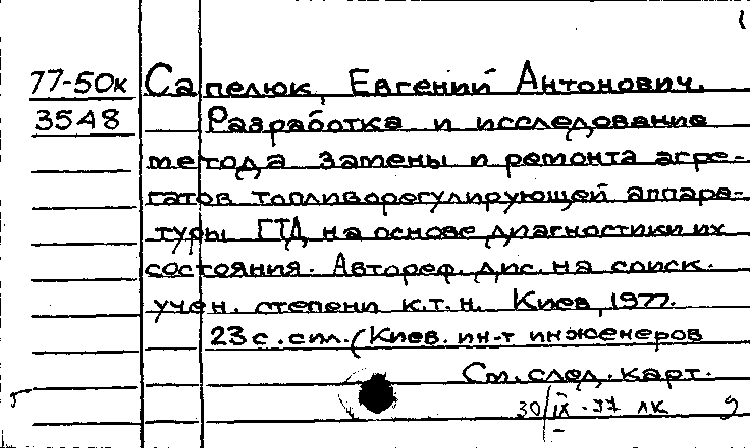 1
77-50к Сапелюк, Евгений Антонович.
3548 Разработка и исследование
метода замены и ремонта агре-
гатов топливорегулирующей аппара-
туры ГТД на основе диагностики их
состояния. Автореф. дис. на соиск.
учен. степени к.т.н. Киев, 1977.
23 с. с ил. (Киев. ин-т инженеров
См. след. карт.
30/IX-77 лк 9